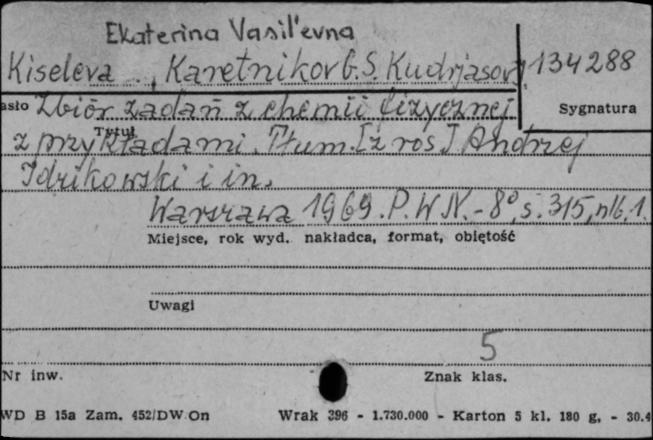 Ekaterina Vasil'evna
Kiseleva , Karetnikov G.S. Kudrjasov
134288
asło
Zbiór zadań z chemii fizycznej
Sygnatura
Tytuł
z przykładami. Tłum. [z ros.] Andrzej
Idzikowski i in.
Warszawa 1969. P.W.N. - 8°, s. 315, nlb. 1.
Miejsce, rok wyd. nakładca, format, objętość
Uwagi
5
Nr inw.
Znak klas.
WD B 15a Zam. 452/DW On Wrak 396 - 1.730.000 - Karton 5 kl. 180 g. - 30.4